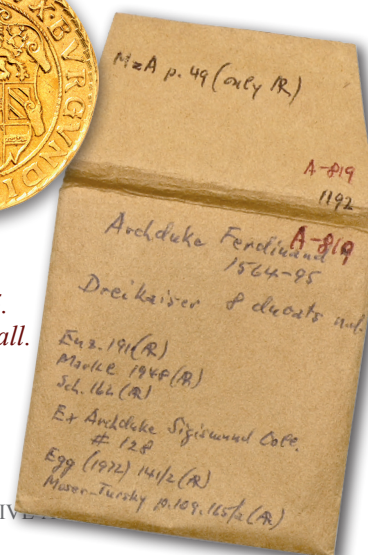 X·BVRGVNDI
MzA p. 49 (only AR)
A-819
1192
A-819
Archduke Ferdinand
1564-95
Dreikaiser 8 ducats n.d.
Enz. 191 (AR)
Markl 1948 (AR)
Sch. 164 (AR)
Ex Archduke Sigismund Coll.
# 128
Egg (1972) 141/2 (AR)
Moser-Tursky p. 109. 165/2 (AR)
all.
IVE